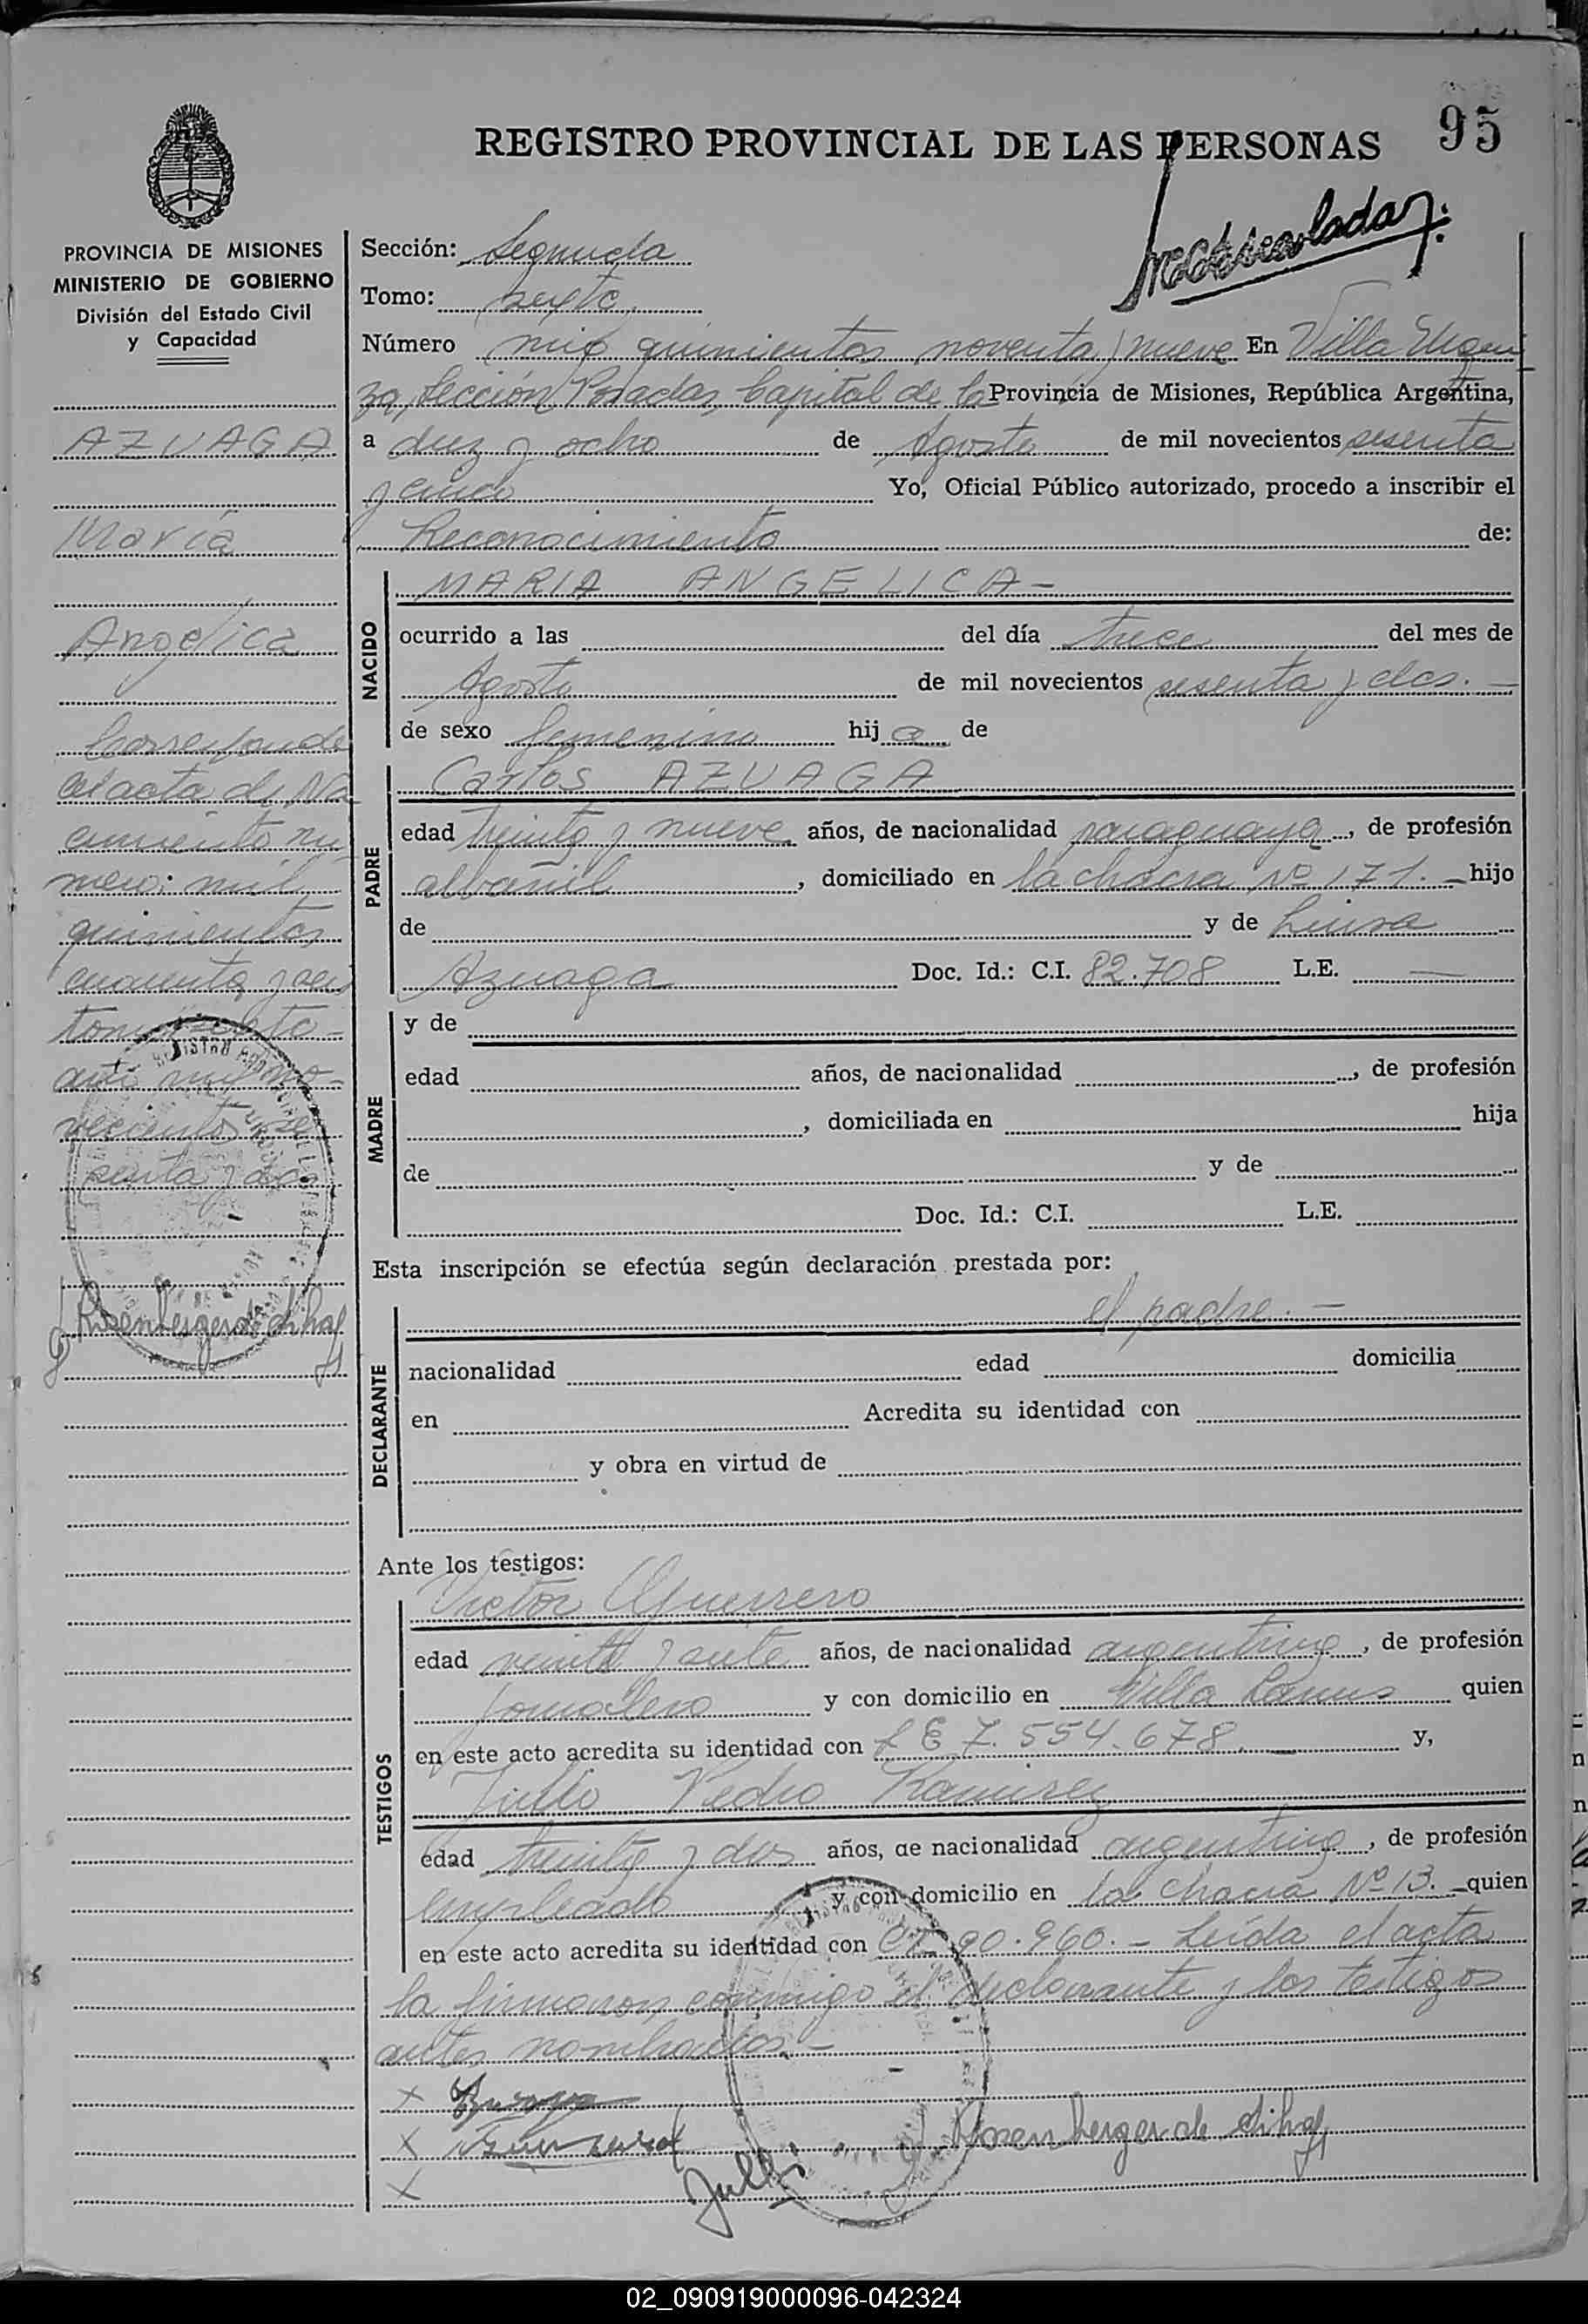 95
REGISTRO PROVINCIAL DE LAS PERSONAS
PROVINCIA DE MISIONES
MINISTERIO DE GOBIERNO
División del Estado Civil
y Capacidad
AZUAGA
María
Angélica
Corresponde
al acta de Na
cimiento nú
mero: mil
quinientos
cuarenta y
tomo
año mil no-
vecientos se
senta y dos
Rosenberger de
Sección: Segunda
Tomo: sexto
Número mil quinientos noventa y nueve En Villa Urqui
za, Sección Posadas, Capital de la Provincia de Misiones, República Argentina,
a diez y ocho de Agosto de mil novecientos sesenta
y cinco Yo, Oficial Público autorizado, procedo a inscribir el
Reconocimiento de:
NACIDO
MARIA ANGELICA-
ocurrido a las del día trece del mes de
Agosto de mil novecientos sesenta y dos.-
de sexo femenino hija de
PADRE
Carlos AZUAGA
edad treinta y nueve años, de nacionalidad paraguaya, de profesión
albañil, domiciliado en la chacra Nº 171.- hijo
de y de Luisa
Azuaga Doc. Id.: C.I. 82.708 L.E. —
MADRE
y de
edad años, de nacionalidad , de profesión
, domiciliada en hija
de y de
Doc. Id.: C.I. L.E.
Esta inscripción se efectúa según declaración prestada por:
DECLARANTE
el padre.-
nacionalidad edad domicilia
en Acredita su identidad con
y obra en virtud de
Ante los testigos:
TESTIGOS
Victor Guerrero
edad veinte y siete años, de nacionalidad argentino, de profesión
jornalero y con domicilio en Villa Lanus quien
en este acto acredita su identidad con LE 7.554.678.— y,
Julio Pedro Ramirez
edad treinta y dos años, de nacionalidad argentino, de profesión
empleado y con domicilio en la chacra Nº 13.- quien
en este acto acredita su identidad con CI 90.960.- Leída el acta
la firmaron, conmigo el declarante y los testigos
antes nombrados.-
X
X
X
Rosenberger de
02_090919000096-042324